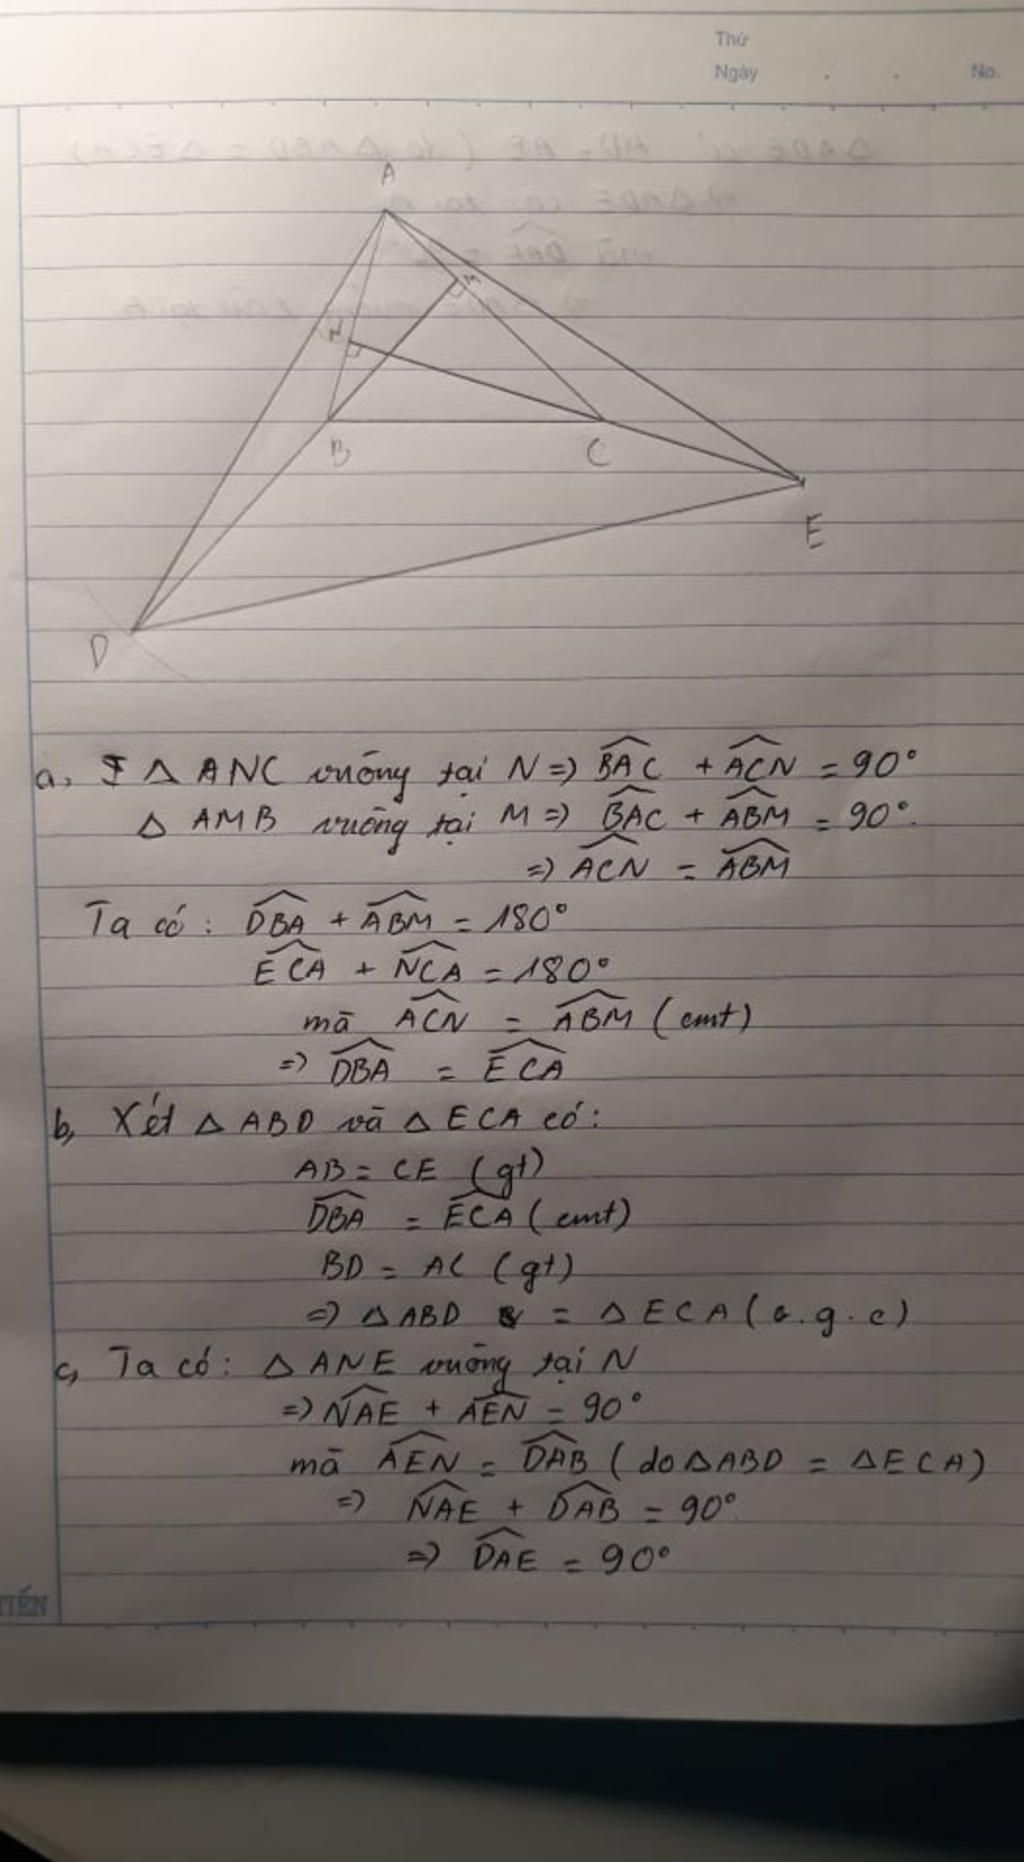 Thứ
Ngày . . No.
A
M
N
B
C
E
D
a, △ ANC vuông tại N => BAC + ACN = 90°
△ AMB vuông tại M => BAC + ABM = 90°.
=> ACN = ABM
Ta có : DBA + ABM = 180°
ECA + NCA = 180°
mà ACN = ABM (cmt)
=> DBA = ECA
b, Xét △ ABD và △ ECA có :
AB = CE (gt)
DBA = ECA (cmt)
BD = AC (gt)
=> △ ABD = △ ECA (c.g.c)
c, Ta có : △ ANE vuông tại N
=> NAE + AEN = 90°
mà AEN = DAB (do △ ABD = △ ECA)
=> NAE + DAB = 90°
=> DAE = 90°
TIẾN